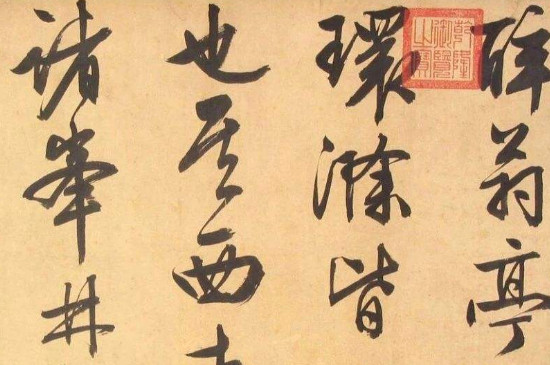 醉翁亭
環滁皆
也其西南
諸峯林
乾隆御覽之寶